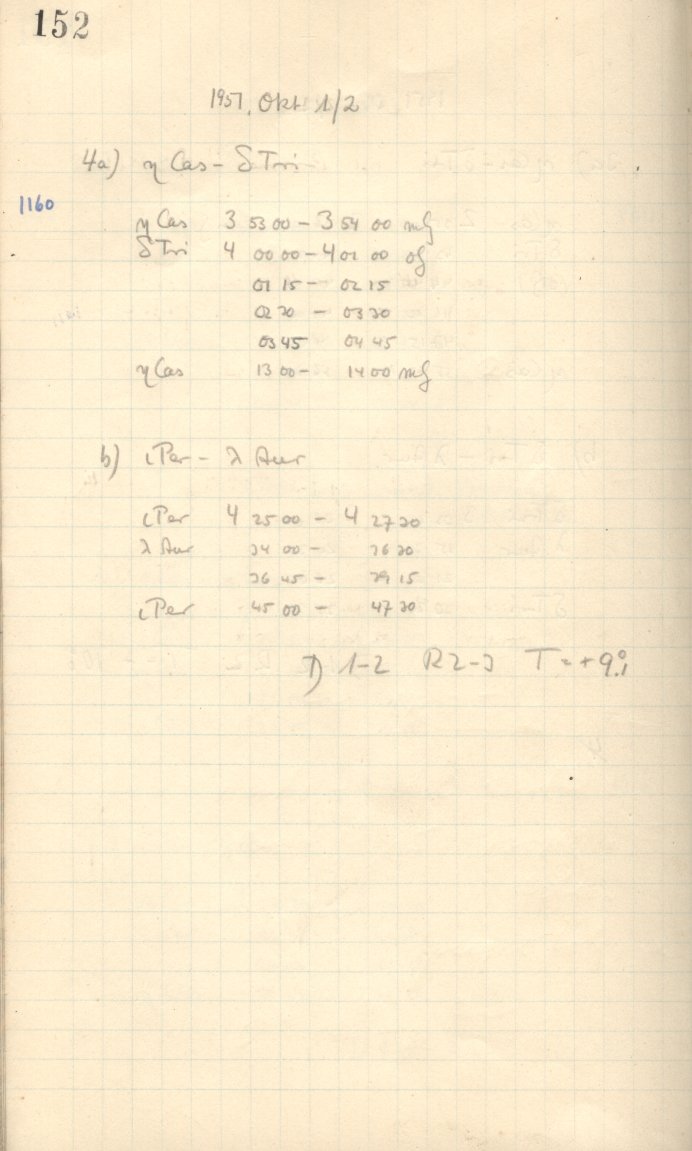 152
1957, Okt. 1/2
4a) η Cas - δ Tri
1160
η Cas 3 53 00 - 3 54 00 mG
δ Tri 4 00 00 - 4 01 00 oG
01 15 - 02 15
02 30 - 03 30
03 45 04 45
η Cas 13 00 - 14 00 mG
b) ι Per - λ Aur
ι Per 4 25 00 - 4 27 30
λ Aur 34 00 - 36 30
36 45 - 39 15
ι Per 45 00 - 47 30
D 1-2 R 2-3 T = +9.°1